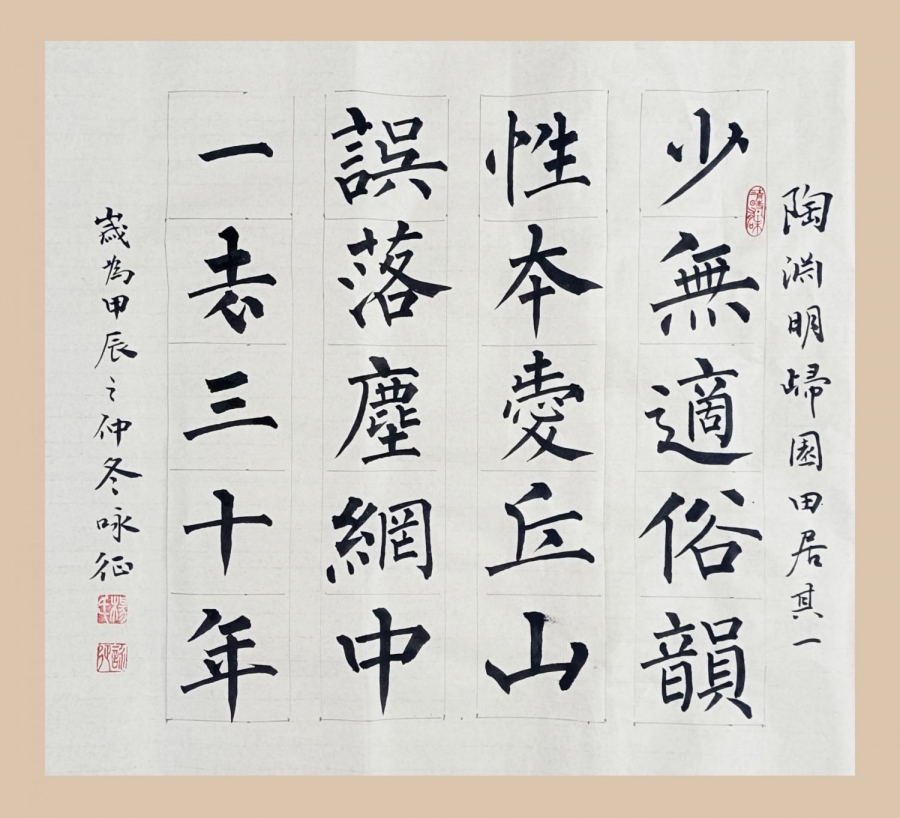 陶淵明歸園田居其一
少無適俗韻
性本愛丘山
誤落塵網中
一去三十年
歲為甲辰之仲冬咏征